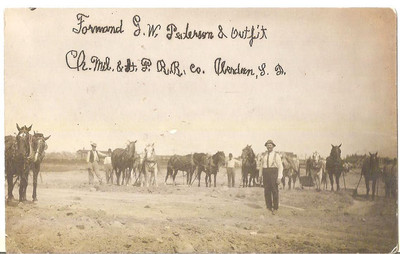 Formand G. W. Pederson & Outfit
Ch. Mil. & St. P. R.R. Co. Aberdeen, S. D.